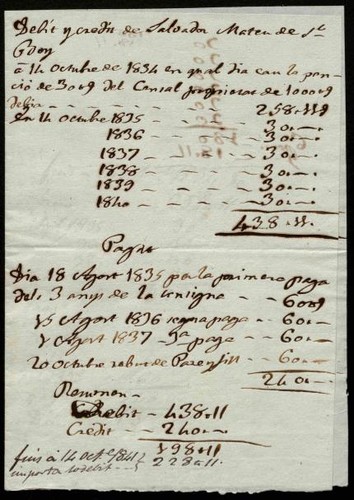 Debit y credit de Salvador Mateu de St.
Gdoy
á 14 octubre de 1834 en qual dia cau la pen-
ció de 30 del Censal de 1000
debia - - 258.11
En 14 octubre 1835 - - 30.-
1836 - - 30.-
1837 - - 30.-
1838 - - 30.-
1839 - - 30.-
1840 - - 30.-
438.11.
Pagat
Dia 18 Agost 1835 por la primera paga
dels 3 anys de la consigna - 60
15 Agost 1836 segona paga - 60.-
Agost 1837 3a paga - 60.-
20 octubre de Pare y fill - 60.-
240.-
Resumen
Debit - 438.11
Credit - 240.-
198.11
fins á 14 octe. 1841
importa lo debit - 228.11.